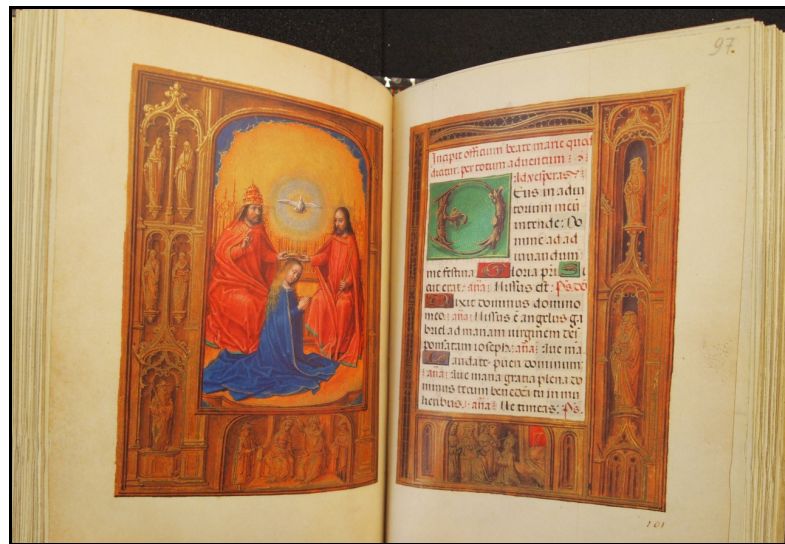 97.
Incipit officium beate marie quod
dicitur per totum adventum :
Ad vesperas
Deus in adiu
torium meū
intende : Do
mine ad ad
iuuandum
me festina Gloria pri S
icut erat : aña : Missus est : Ps. do
Dixit dominus domino
meo : aña : Missus ē angelus ga
briel ad mariam virginem des
ponsatam ioseph : aña : Aue ma
Laudate pueri dominum :
aña : Aue maria gratia plena do
minus tecum benedicta tu in mu
lieribus : aña : Ne timeas : Ps.
101